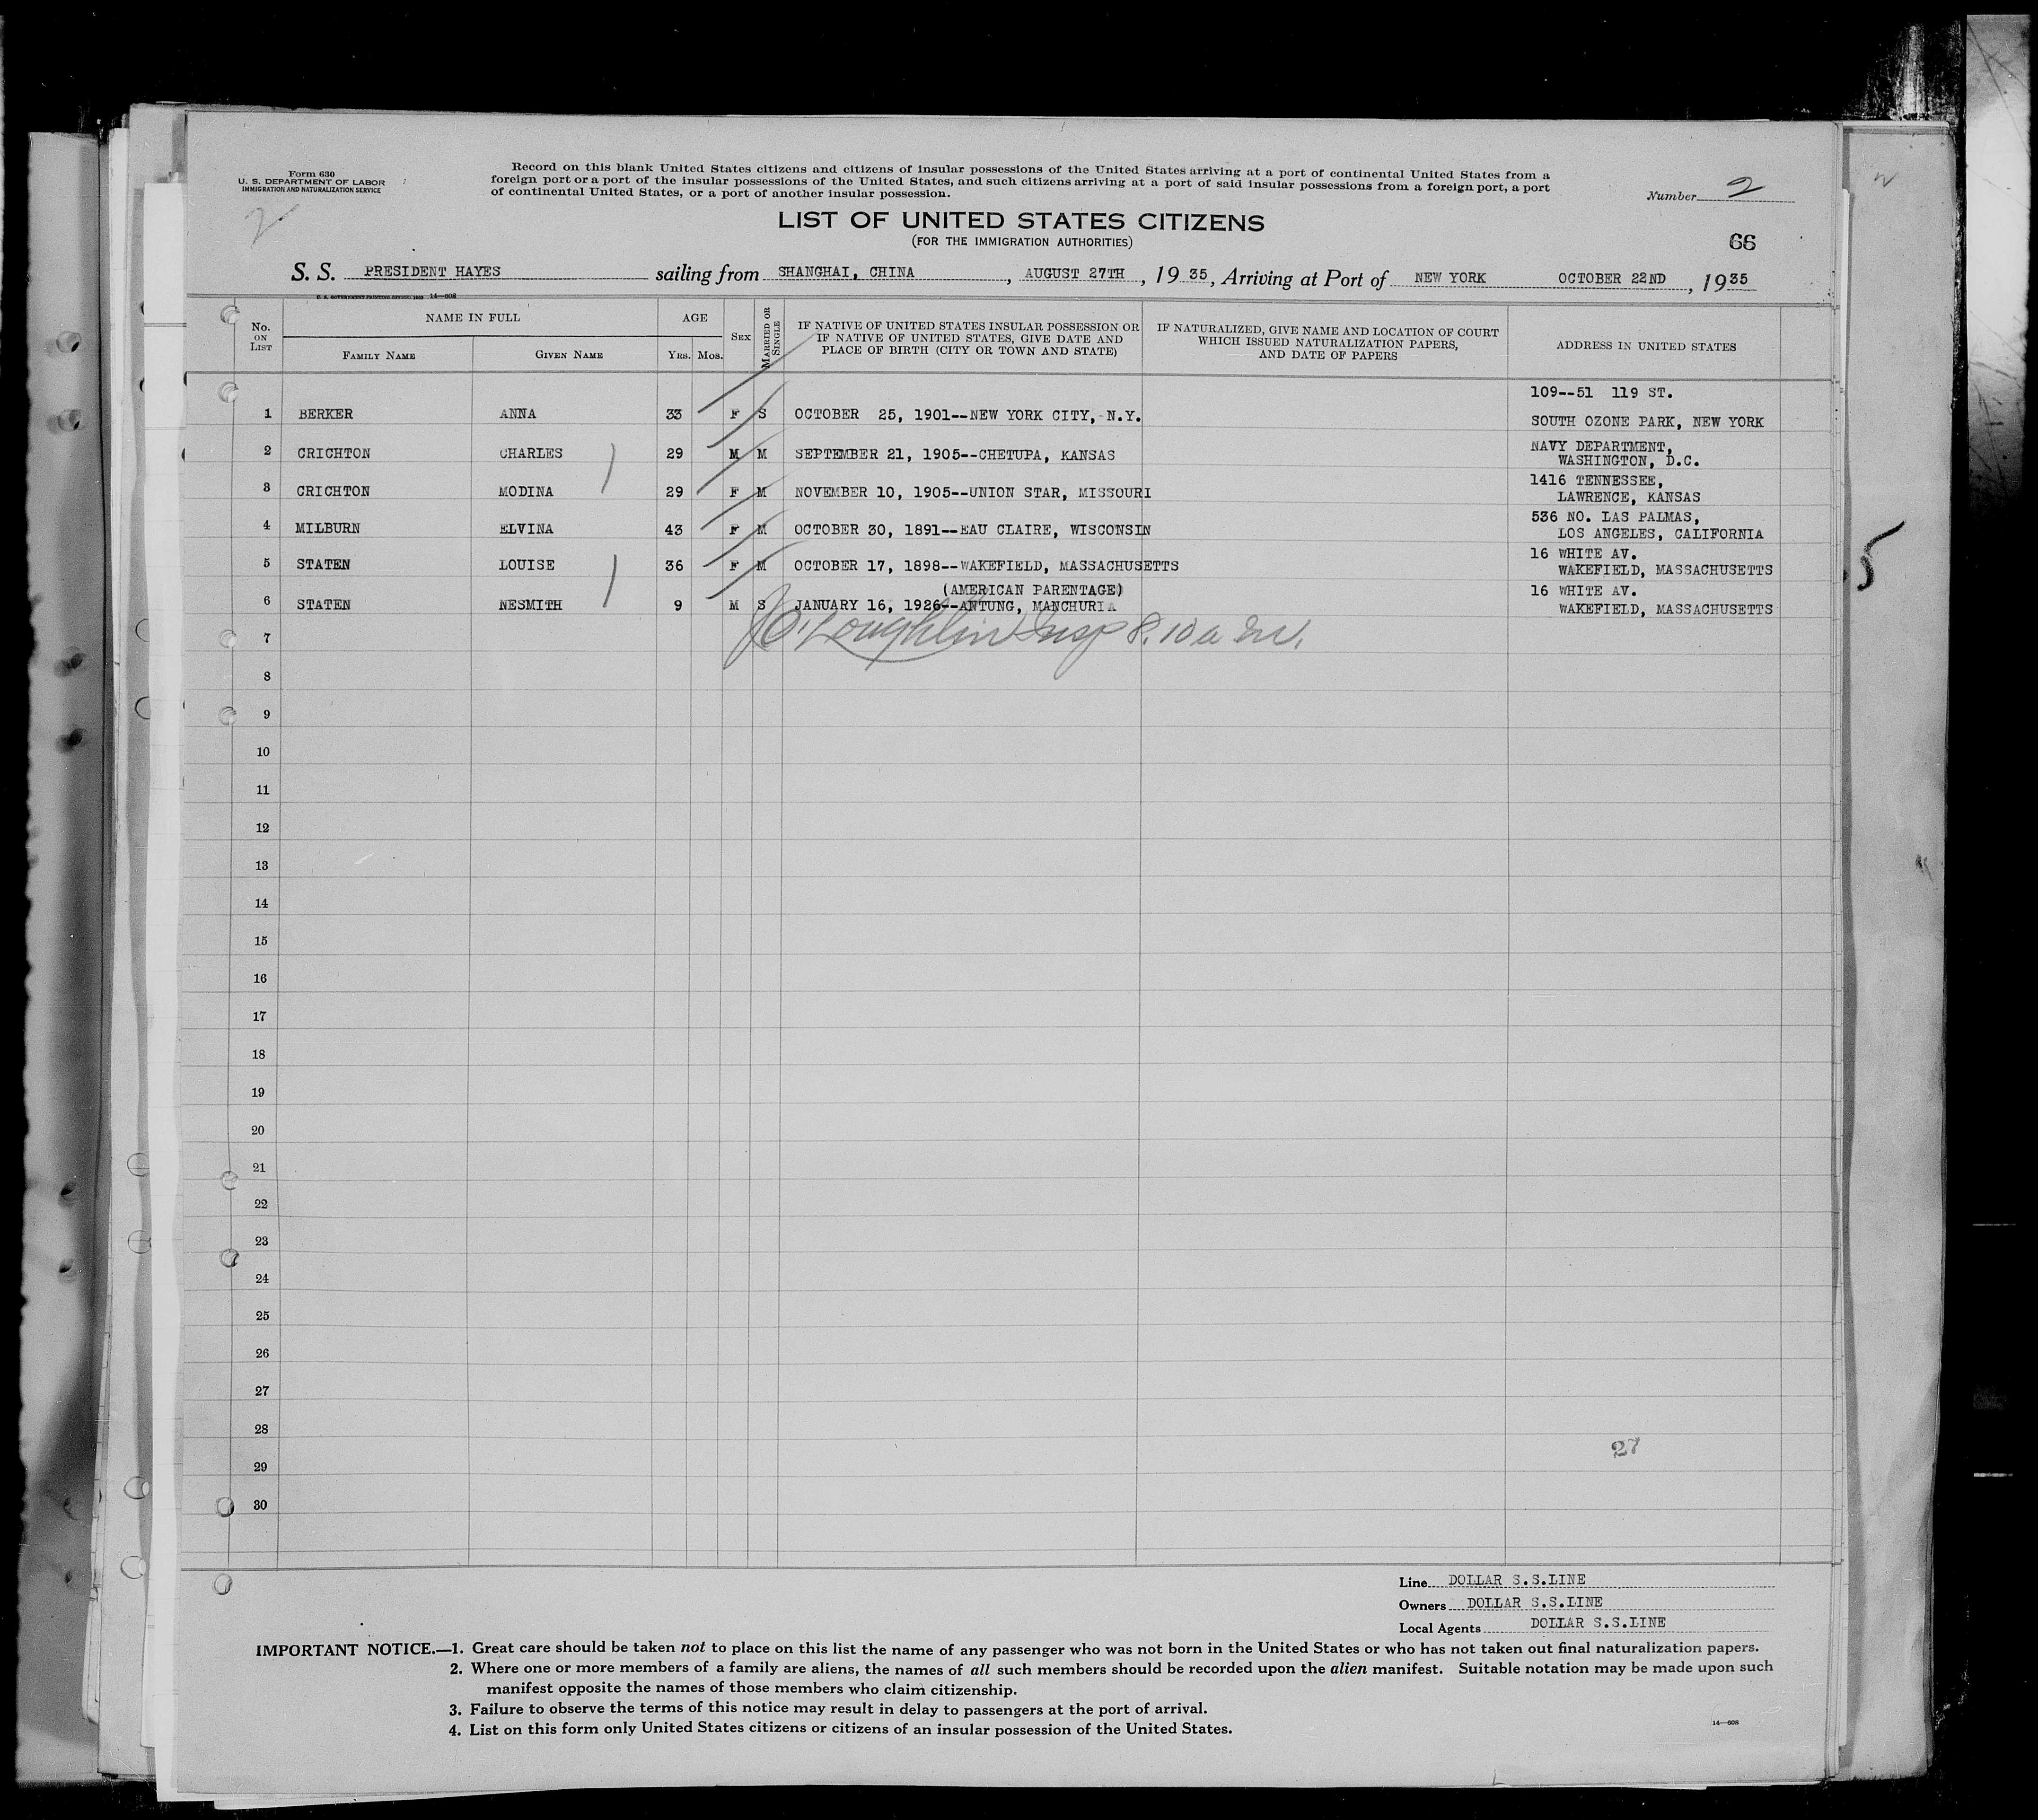 Form 630
U. S. DEPARTMENT OF LABOR
IMMIGRATION AND NATURALIZATION SERVICE
Record on this blank United States citizens and citizens of insular possessions of the United States arriving at a port of continental United States from a
foreign port or a port of the insular possessions of the United States, and such citizens arriving at a port of said insular possessions from a foreign port, a port
of continental United States, or a port of another insular possession.
Number 2
2
LIST OF UNITED STATES CITIZENS
(FOR THE IMMIGRATION AUTHORITIES)
66
S. S. PRESIDENT HAYES sailing from SHANGHAI, CHINA, AUGUST 27TH, 19 35, Arriving at Port of NEW YORK OCTOBER 22ND, 19 35
U. S. GOVERNMENT PRINTING OFFICE: 14—608
No. ON LIST
NAME IN FULL
FAMILY NAME GIVEN NAME
AGE
YRS. MOS.
SEX
MARRIED OR SINGLE
IF NATIVE OF UNITED STATES INSULAR POSSESSION OR
IF NATIVE OF UNITED STATES, GIVE DATE AND
PLACE OF BIRTH (CITY OR TOWN AND STATE)
IF NATURALIZED, GIVE NAME AND LOCATION OF COURT
WHICH ISSUED NATURALIZATION PAPERS,
AND DATE OF PAPERS
ADDRESS IN UNITED STATES
109--51 119 ST.
1 BERKER ANNA 33 F S OCTOBER 25, 1901--NEW YORK CITY, N.Y.
SOUTH OZONE PARK, NEW YORK
2 CRICHTON CHARLES 29 M M SEPTEMBER 21, 1905--CHETUPA, KANSAS NAVY DEPARTMENT,
WASHINGTON, D.C.
3 CRICHTON MODINA 29 F M NOVEMBER 10, 1905--UNION STAR, MISSOURI 1416 TENNESSEE,
LAWRENCE, KANSAS
4 MILBURN ELVINA 43 F M OCTOBER 30, 1891--EAU CLAIRE, WISCONSIN 536 NO. LAS PALMAS,
LOS ANGELES, CALIFORNIA
5 STATEN LOUISE 36 F M OCTOBER 17, 1898--WAKEFIELD, MASSACHUSETTS 16 WHITE AV.
WAKEFIELD, MASSACHUSETTS
5
(AMERICAN PARENTAGE)
6 STATEN NESMITH 9 M S JANUARY 16, 1926--ANTUNG, MANCHURIA 16 WHITE AV.
WAKEFIELD, MASSACHUSETTS
7 O'Loughlin Insp 8.10 a m.
8
9
10
11
12
13
14
15
16
17
18
19
20
21
22
23
24
25
26
27
28
27
29
30
Line DOLLAR S.S.LINE
Owners DOLLAR S.S.LINE
Local Agents DOLLAR S.S.LINE
IMPORTANT NOTICE.—1. Great care should be taken not to place on this list the name of any passenger who was not born in the United States or who has not taken out final naturalization papers.
2. Where one or more members of a family are aliens, the names of all such members should be recorded upon the alien manifest. Suitable notation may be made upon such
manifest opposite the names of those members who claim citizenship.
3. Failure to observe the terms of this notice may result in delay to passengers at the port of arrival.
4. List on this form only United States citizens or citizens of an insular possession of the United States.
14—608